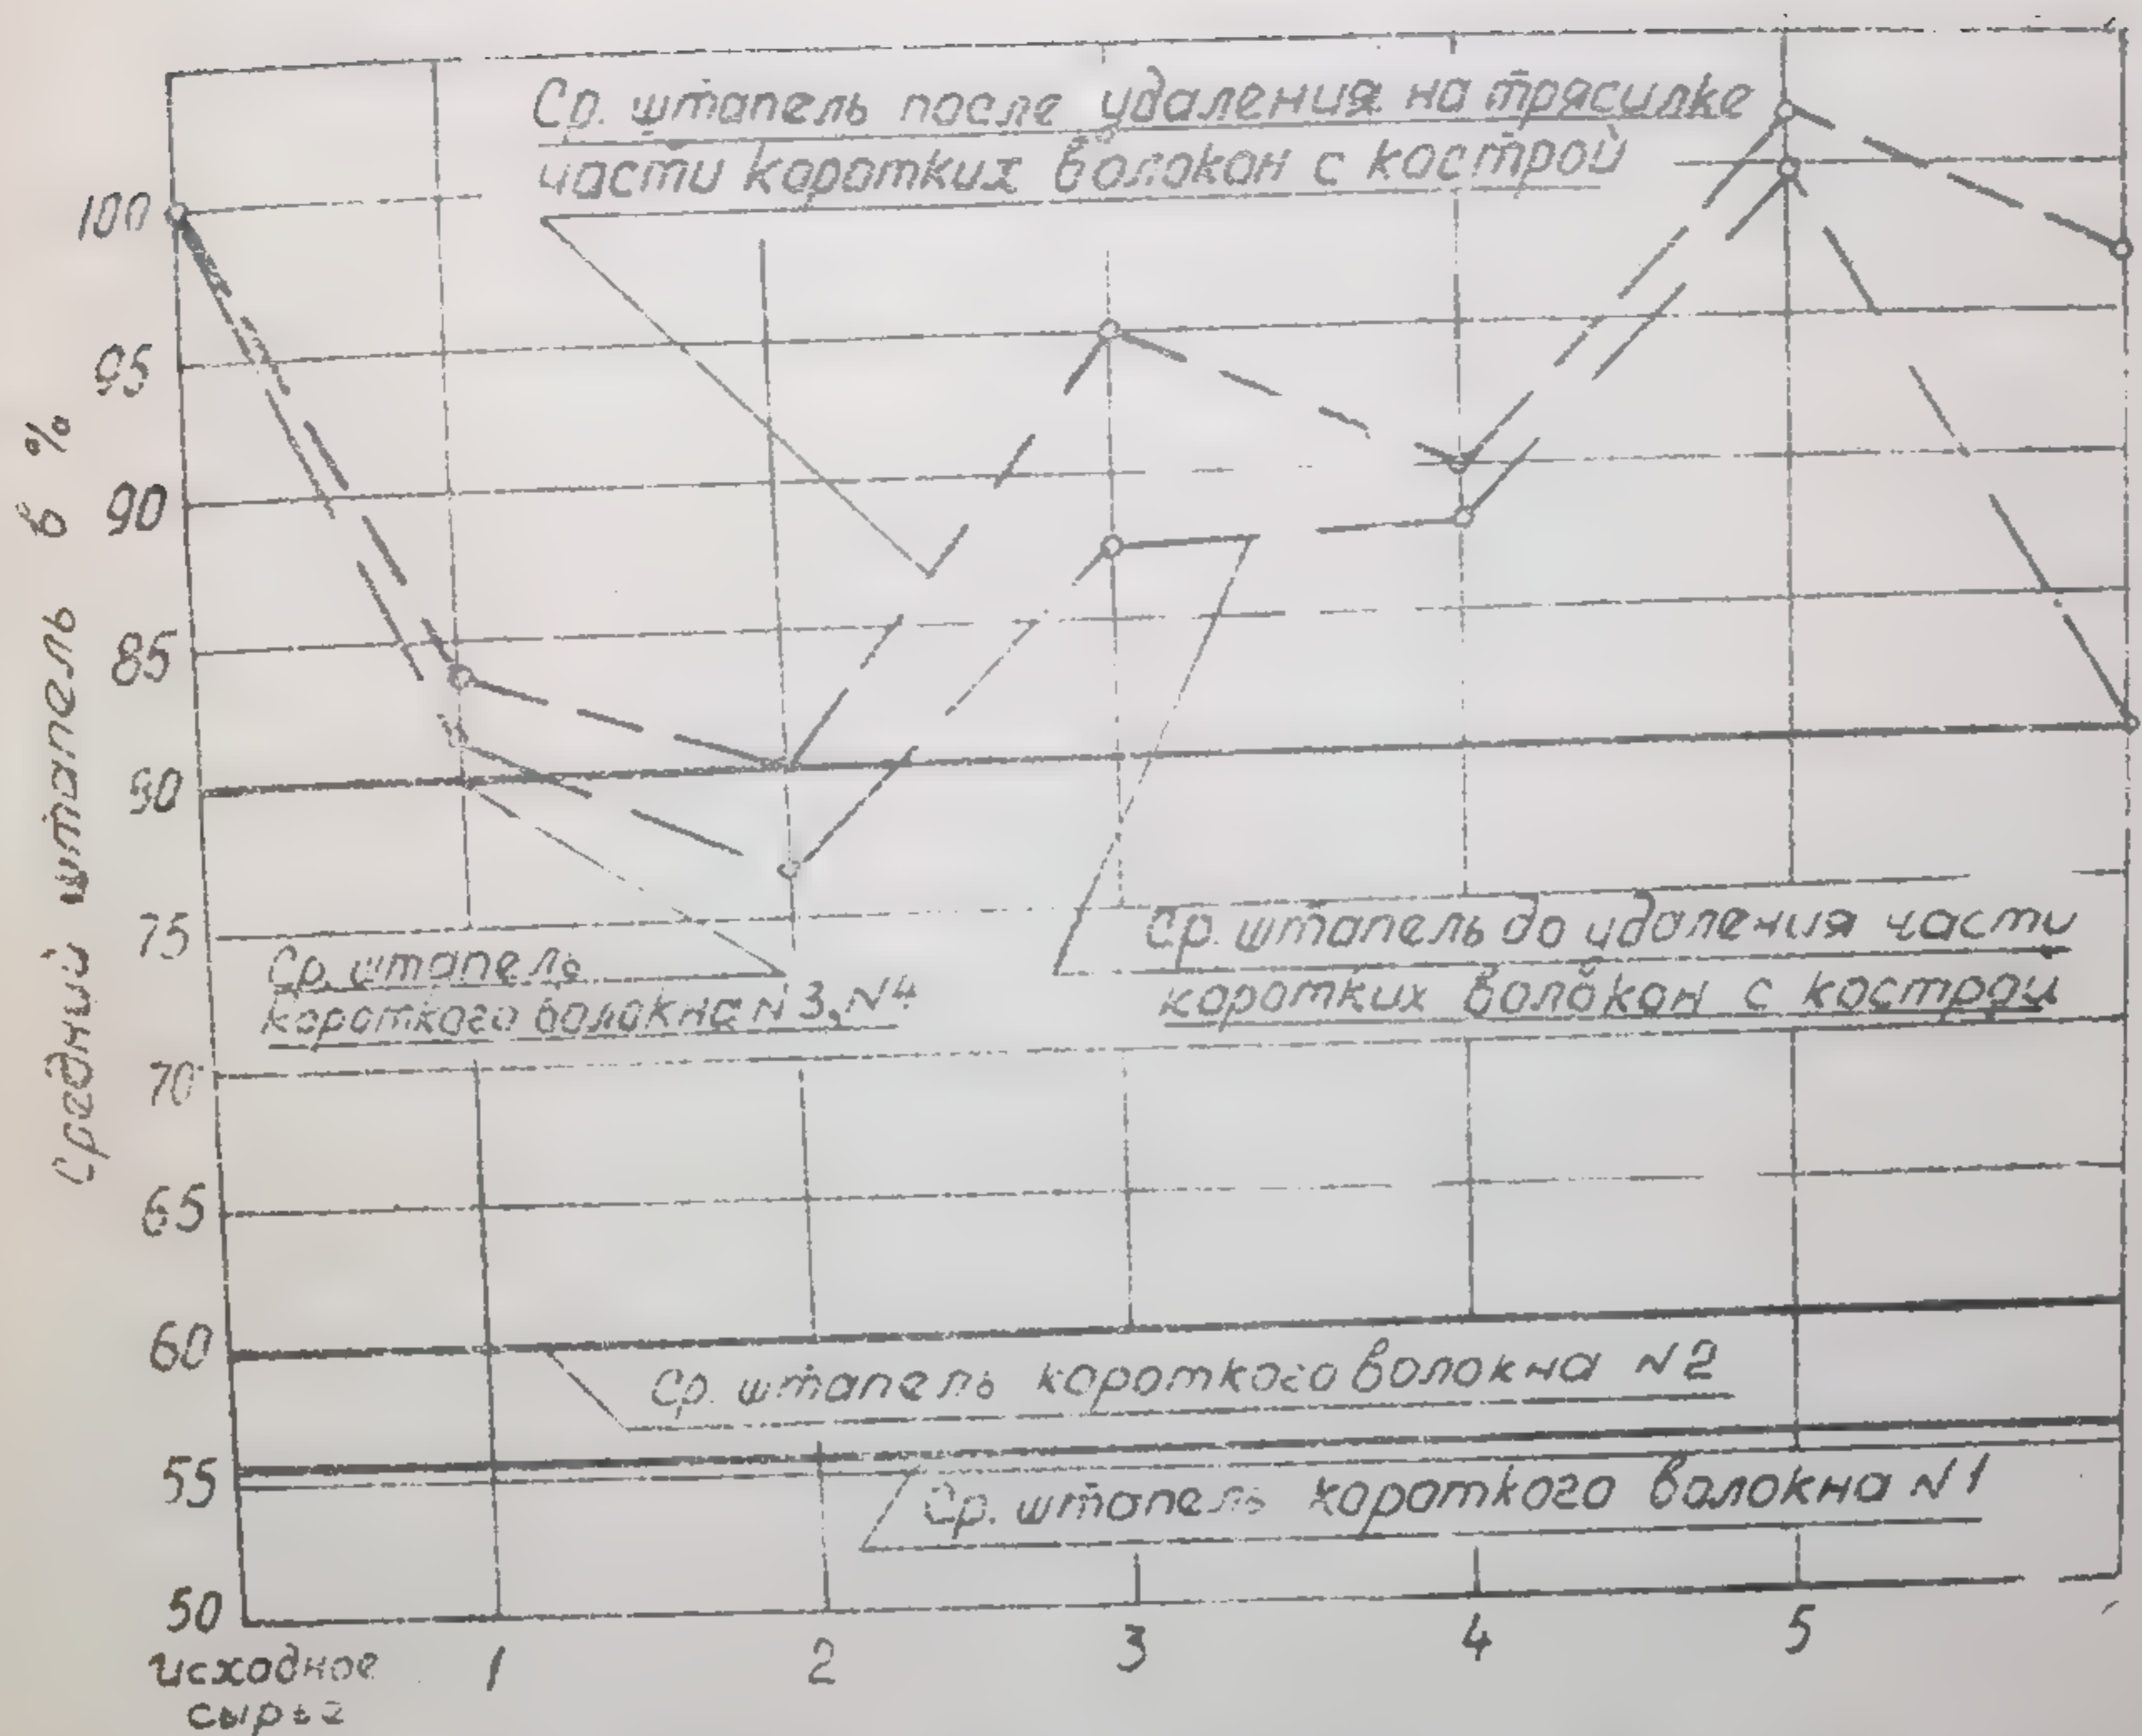 Ср. штапель после удаления на трясилке
части коротких волокон с кострой
Средний штапель в %
100
95
90
85
90
75
70
65
60
55
50
Ср. штапель
короткого волокна N 3, N4
Ср. штапель до удаления части
коротких волокон с кострой
Ср. штапель короткого волокна N2
Ср. штапель короткого волокна N1
исходное
сырье
1
2
3
4
5